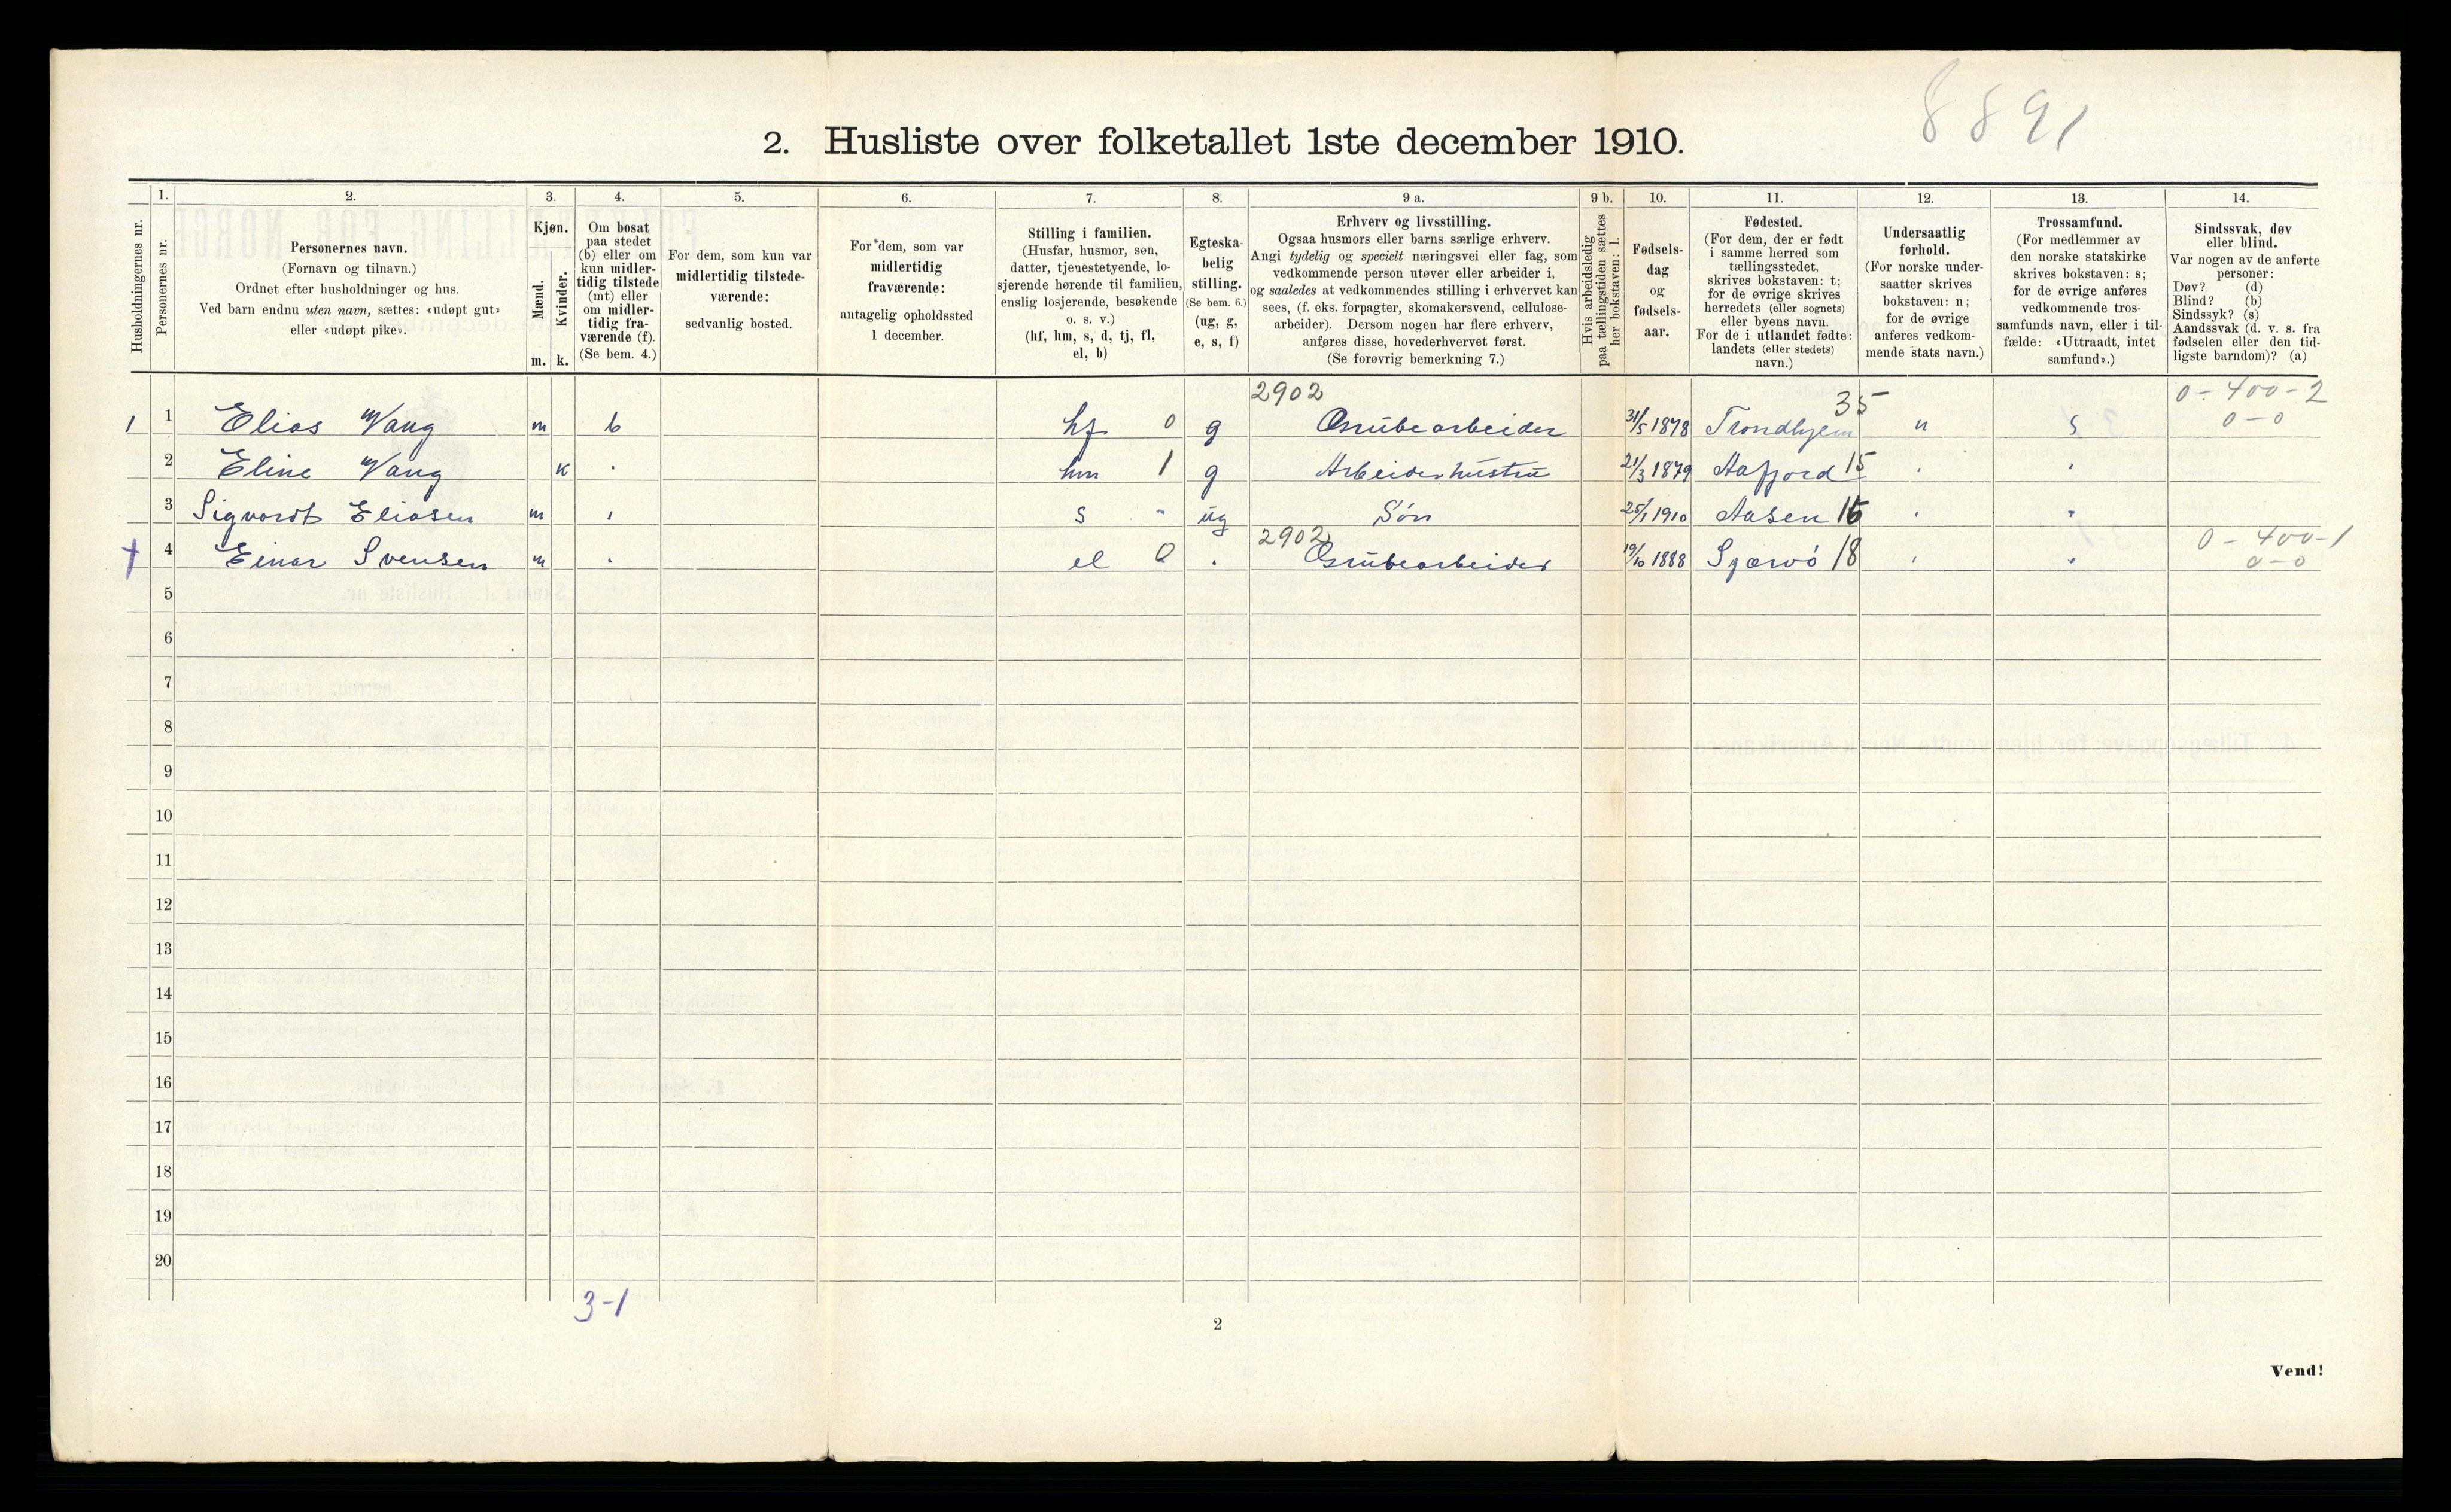 8891
2. Husliste over folketallet 1ste december 1910.
Husholdningernes nr.
1.
Personernes nr.
2.
Personernes navn.
(Fornavn og tilnavn.)
Ordnet efter husholdninger og hus.
Ved barn endnu uten navn, sættes: «udøpt gut»
eller «udøpt pike».
3.
Kjøn.
Mænd.
Kvinder.
m. k.
4.
Om bosat
paa stedet
(b) eller om
kun midler-
tidig tilstede
(mt) eller
om midler-
tidig fra-
værende (f).
(Se bem. 4.)
5.
For dem, som kun var
midlertidig tilstede-
værende:
sedvanlig bosted.
6.
For dem, som var
midlertidig
fraværende:
antagelig opholdssted
1 december.
7.
Stilling i familien.
(Husfar, husmor, søn,
datter, tjenestetyende, lo-
sjerende hørende til familien,
enslig losjerende, besøkende
o. s. v.)
(hf, hm, s, d, tj, fl,
el, b)
8.
Egteska-
belig
stilling.
(Se bem. 6.)
(ug, g,
e, s, f)
9 a.
Erhverv og livsstilling.
Ogsaa husmors eller barns særlige erhverv.
Angi tydelig og specielt næringsvei eller fag, som
vedkommende person utøver eller arbeider i,
og saaledes at vedkommendes stilling i erhvervet kan
sees, (f. eks. forpagter, skomakersvend, cellulose-
arbeider). Dersom nogen har flere erhverv,
anføres disse, hovederhvervet først.
(Se forøvrig bemerkning 7.)
9 b.
Hvis arbeidsledig
paa tællingstiden sættes
her bokstaven: l.
10.
Fødsels-
dag
og
fødsels-
aar.
11.
Fødested.
(For dem, der er født
i samme herred som
tællingsstedet,
skrives bokstaven: t;
for de øvrige skrives
herredets (eller sognets)
eller byens navn.
For de i utlandet fødte:
landets (eller stedets)
navn.)
12.
Undersaatlig
forhold.
(For norske under-
saatter skrives
bokstaven: n;
for de øvrige
anføres vedkom-
mende stats navn.)
13.
Trossamfund.
(For medlemmer av
den norske statskirke
skrives bokstaven: s;
for de øvrige anføres
vedkommende tros-
samfunds navn, eller i til-
fælde: «Uttraadt, intet
samfund».)
14.
Sindssvak, døv
eller blind.
Var nogen av de anførte
personer:
Døv? (d)
Blind? (b)
Sindssyk? (s)
Aandssvak (d. v. s. fra
fødselen eller den tid-
ligste barndom)? (a)
2902 35 0 - 400 - 2
1 1 Elias Vang m b hf 0 g Grubearbeider 31/5 1878 Trondhjem n s 0 - 0
2 Eline Vang k . hm 1 g Arbeiderhustru 21/3 1879 Aafjord 15 . "
3 Sigvardt Eliasen m . s " ug Søn 25/1 1910 Aasen 16 . "
2902 0 - 400 - 1
4 Einar Svensen m . el 0 . Grubearbeider 19/10 1888 Sjærvö 18 . " 0 - 0
5
6
7
8
9
10
11
12
13
14
15
16
17
18
19
20
3-1
2
Vend!